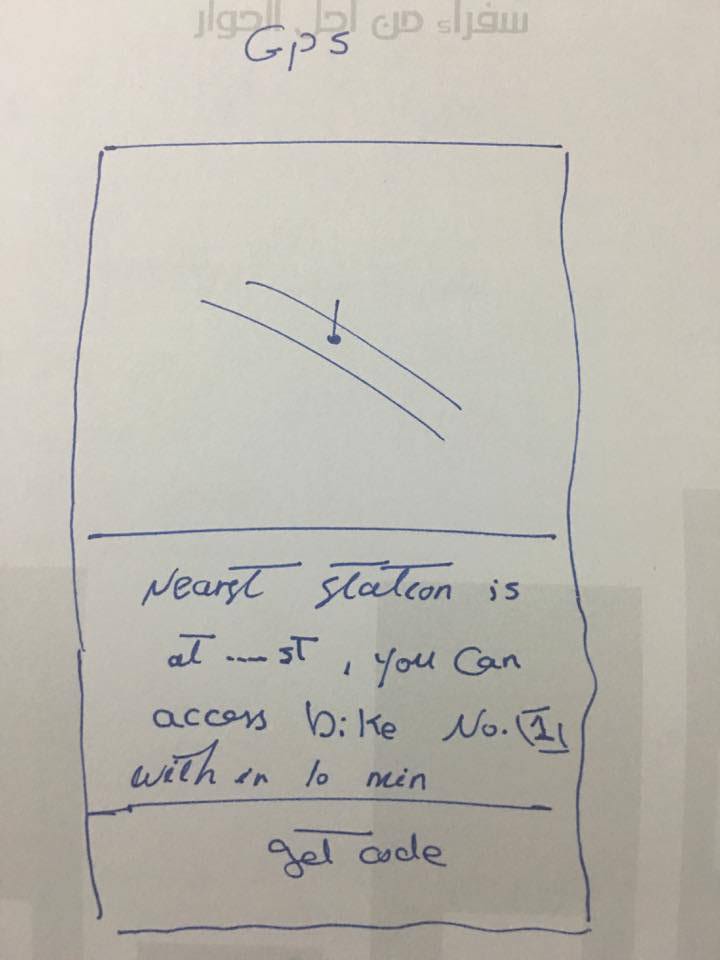 سفراء من أجل الحوار
Gps
Nearst station is
at .... st , you can
access bike No. (1)
with in 10 min
get code